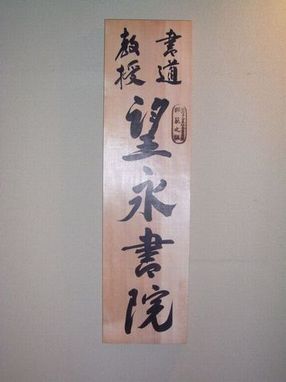 書道
教授
望永書院